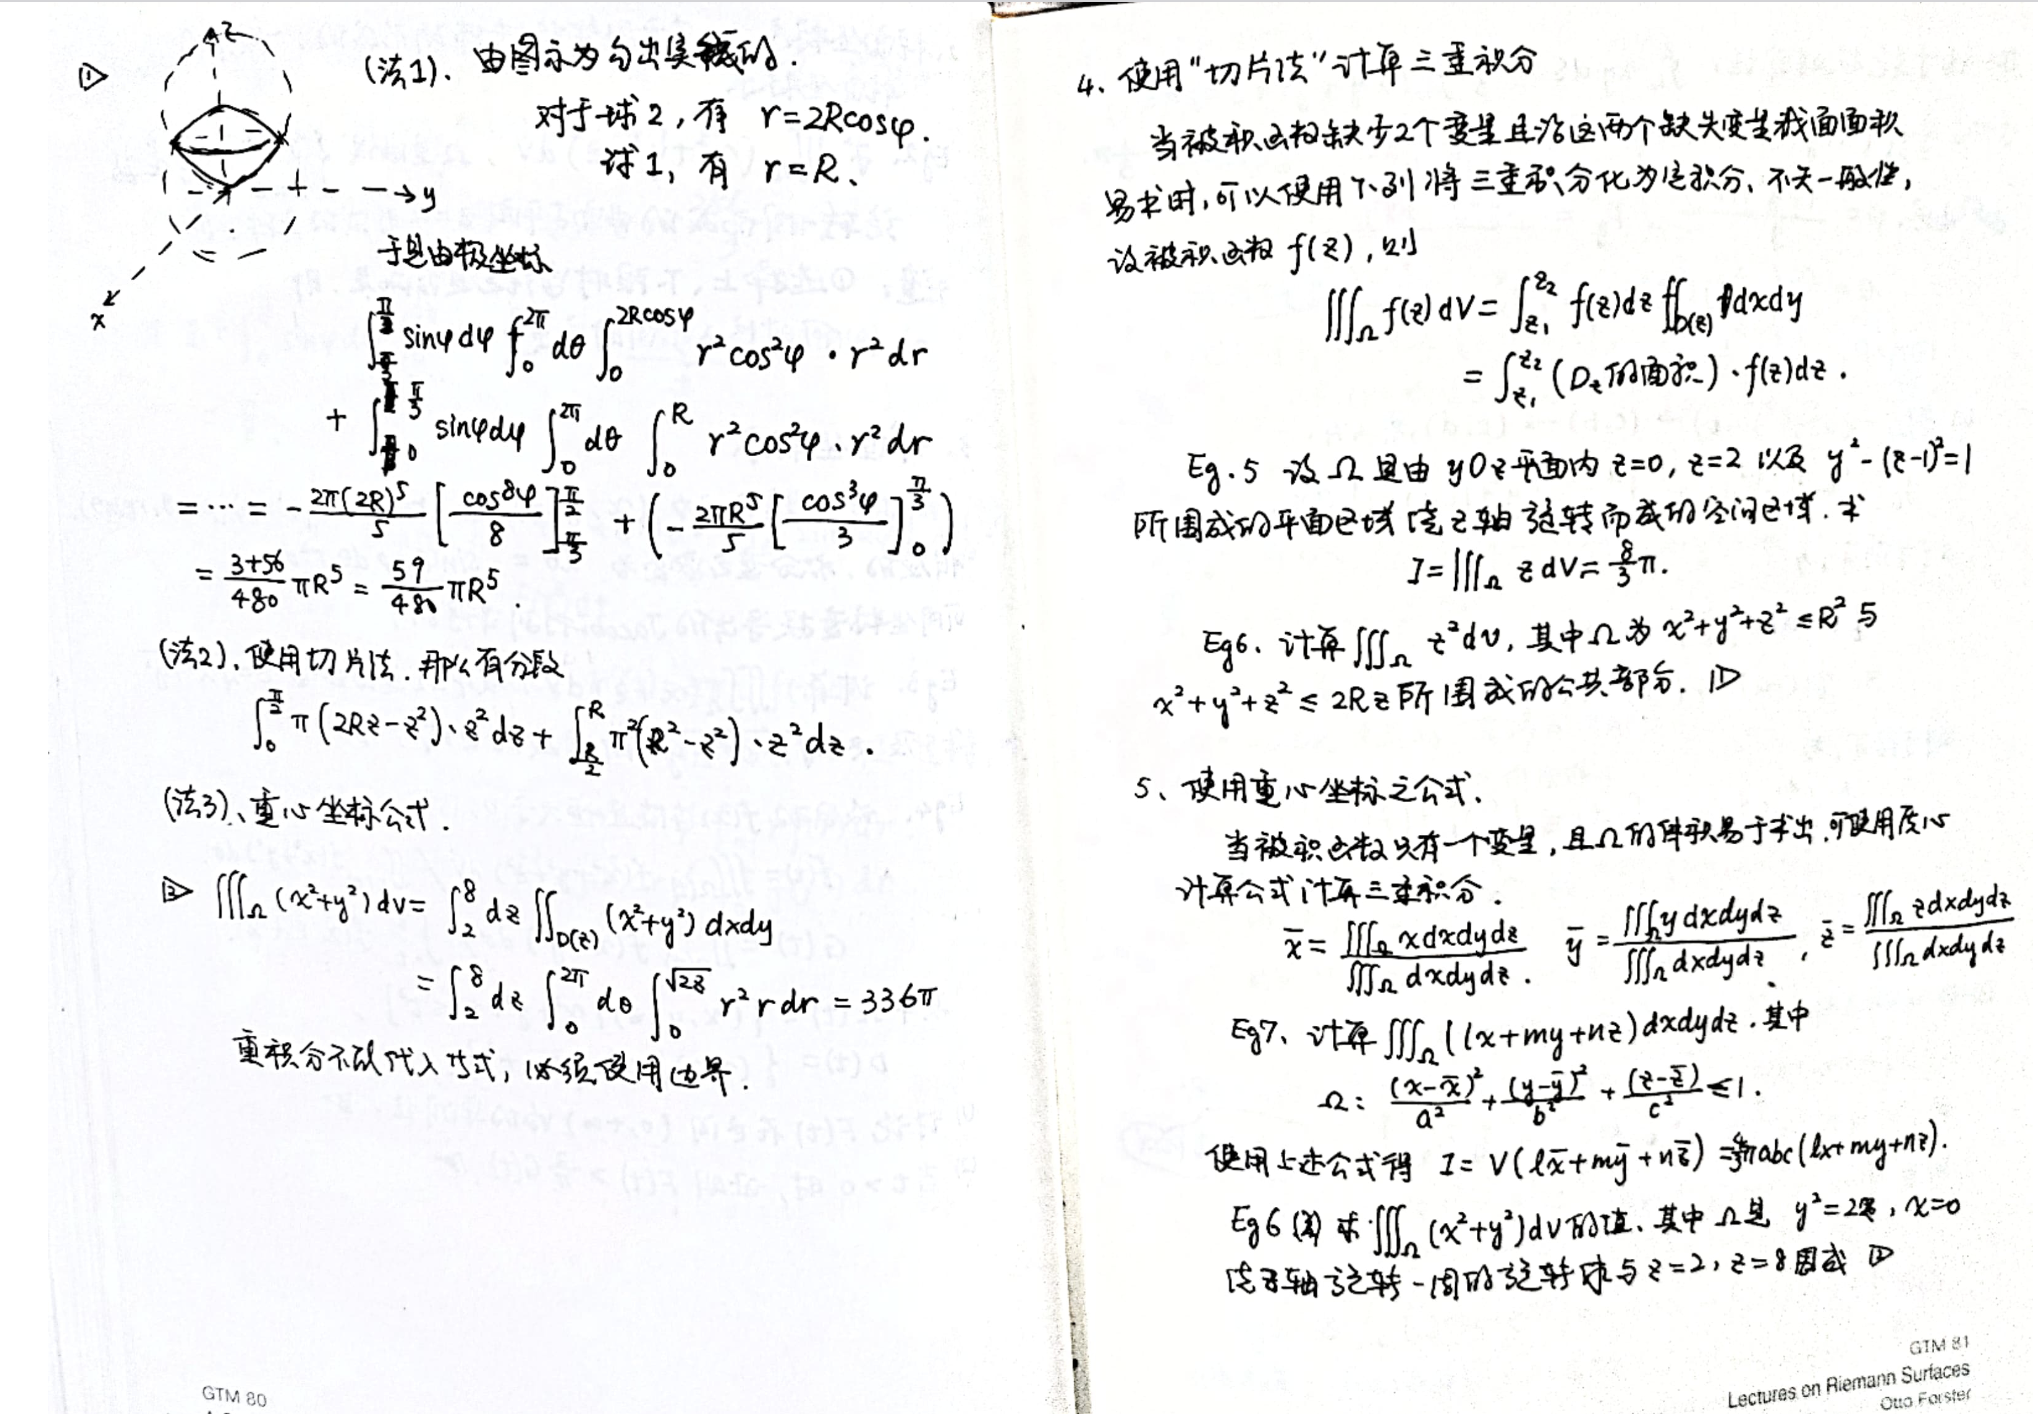 z
y
x
①▷ (法1). 由图示为勾出实线的.
对于球2, 有 r=2Rcosφ.
球1, 有 r=R.
于是由极坐标
∫_{π/3}^{π/2} sinφdφ ∫_0^{2π} dθ ∫_0^{2Rcosφ} r²cos²φ · r²dr
+ ∫_0^{π/3} sinφdφ ∫_0^{2π} dθ ∫_0^R r²cos²φ · r²dr
= ⋯ = - 2π(2R)⁵/5 [cos⁸φ/8]_{π/3}^{π/2} + (- 2πR⁵/5 [cos³φ/3]_0^{π/3})
= (3+56)/480 πR⁵ = 59/480 πR⁵.
(法2)、使用切片法. 那么有分段
∫_0^{π/2} π(2Rz-z²)·z²dz + ∫_{R/2}^R π²(R²-z²)·z²dz.
(法3)、重心坐标公式.
②▷ ∭_Ω (x²+y²)dv = ∫_2^8 dz ∬_{D(z)} (x²+y²)dxdy
= ∫_2^8 dz ∫_0^{2π} dθ ∫_0^{√2z} r² r dr = 336π
重积分不能代入方式, 必须使用边界.
GTM 80
4、使用"切片法"计算三重积分
当被积函数缺少2个变量且沿这两个缺失变量截面面积
易求时, 可以使用下列将三重积分化为定积分. 不失一般性,
设被积函数 f(z), 则
∭_Ω f(z)dV = ∫_{z₁}^{z₂} f(z)dz ∬_{D(z)} 1dxdy
= ∫_{z₁}^{z₂} (D_z的面积)·f(z)dz.
Eg.5 设Ω是由yOz平面内 z=0, z=2 以及 y²-(z-1)²=1
所围成的平面区域绕z轴旋转而成的空间区域. 求
I=∭_Ω zdV= 8/3 π.
Eg6. 计算∭_Ω z²dv, 其中Ω为 x²+y²+z²≤R² 与
x²+y²+z² ≤ 2Rz 所围成的公共部分. ①▷
5、使用重心坐标之公式.
当被积函数只有一个变量, 且Ω的体积易于求出. 可使用质心
计算公式计算三重积分.
x̄ = ∭_Ω xdxdydz / ∭_Ω dxdydz. ȳ = ∭_Ω ydxdydz / ∭_Ω dxdydz, z̄ = ∭_Ω zdxdydz / ∭_Ω dxdydz
Eg7、计算∭_Ω (lx+my+nz)dxdydz. 其中
Ω: (x-x̄)²/a² + (y-ȳ)²/b² + (z-z̄)/c² ≤1.
使用上述公式得 I= V(lx̄+mȳ+nz̄) = 4/3 πabc(lx+my+nz).
Eg6(2) 求∭_Ω (x²+y²)dv的值. 其中Ω是 y²=2z, x=0
绕z轴旋转一周的旋转体与z=2, z=8围成 ②▷
GTM 81
Lectures on Riemann Surfaces
Otto Forster